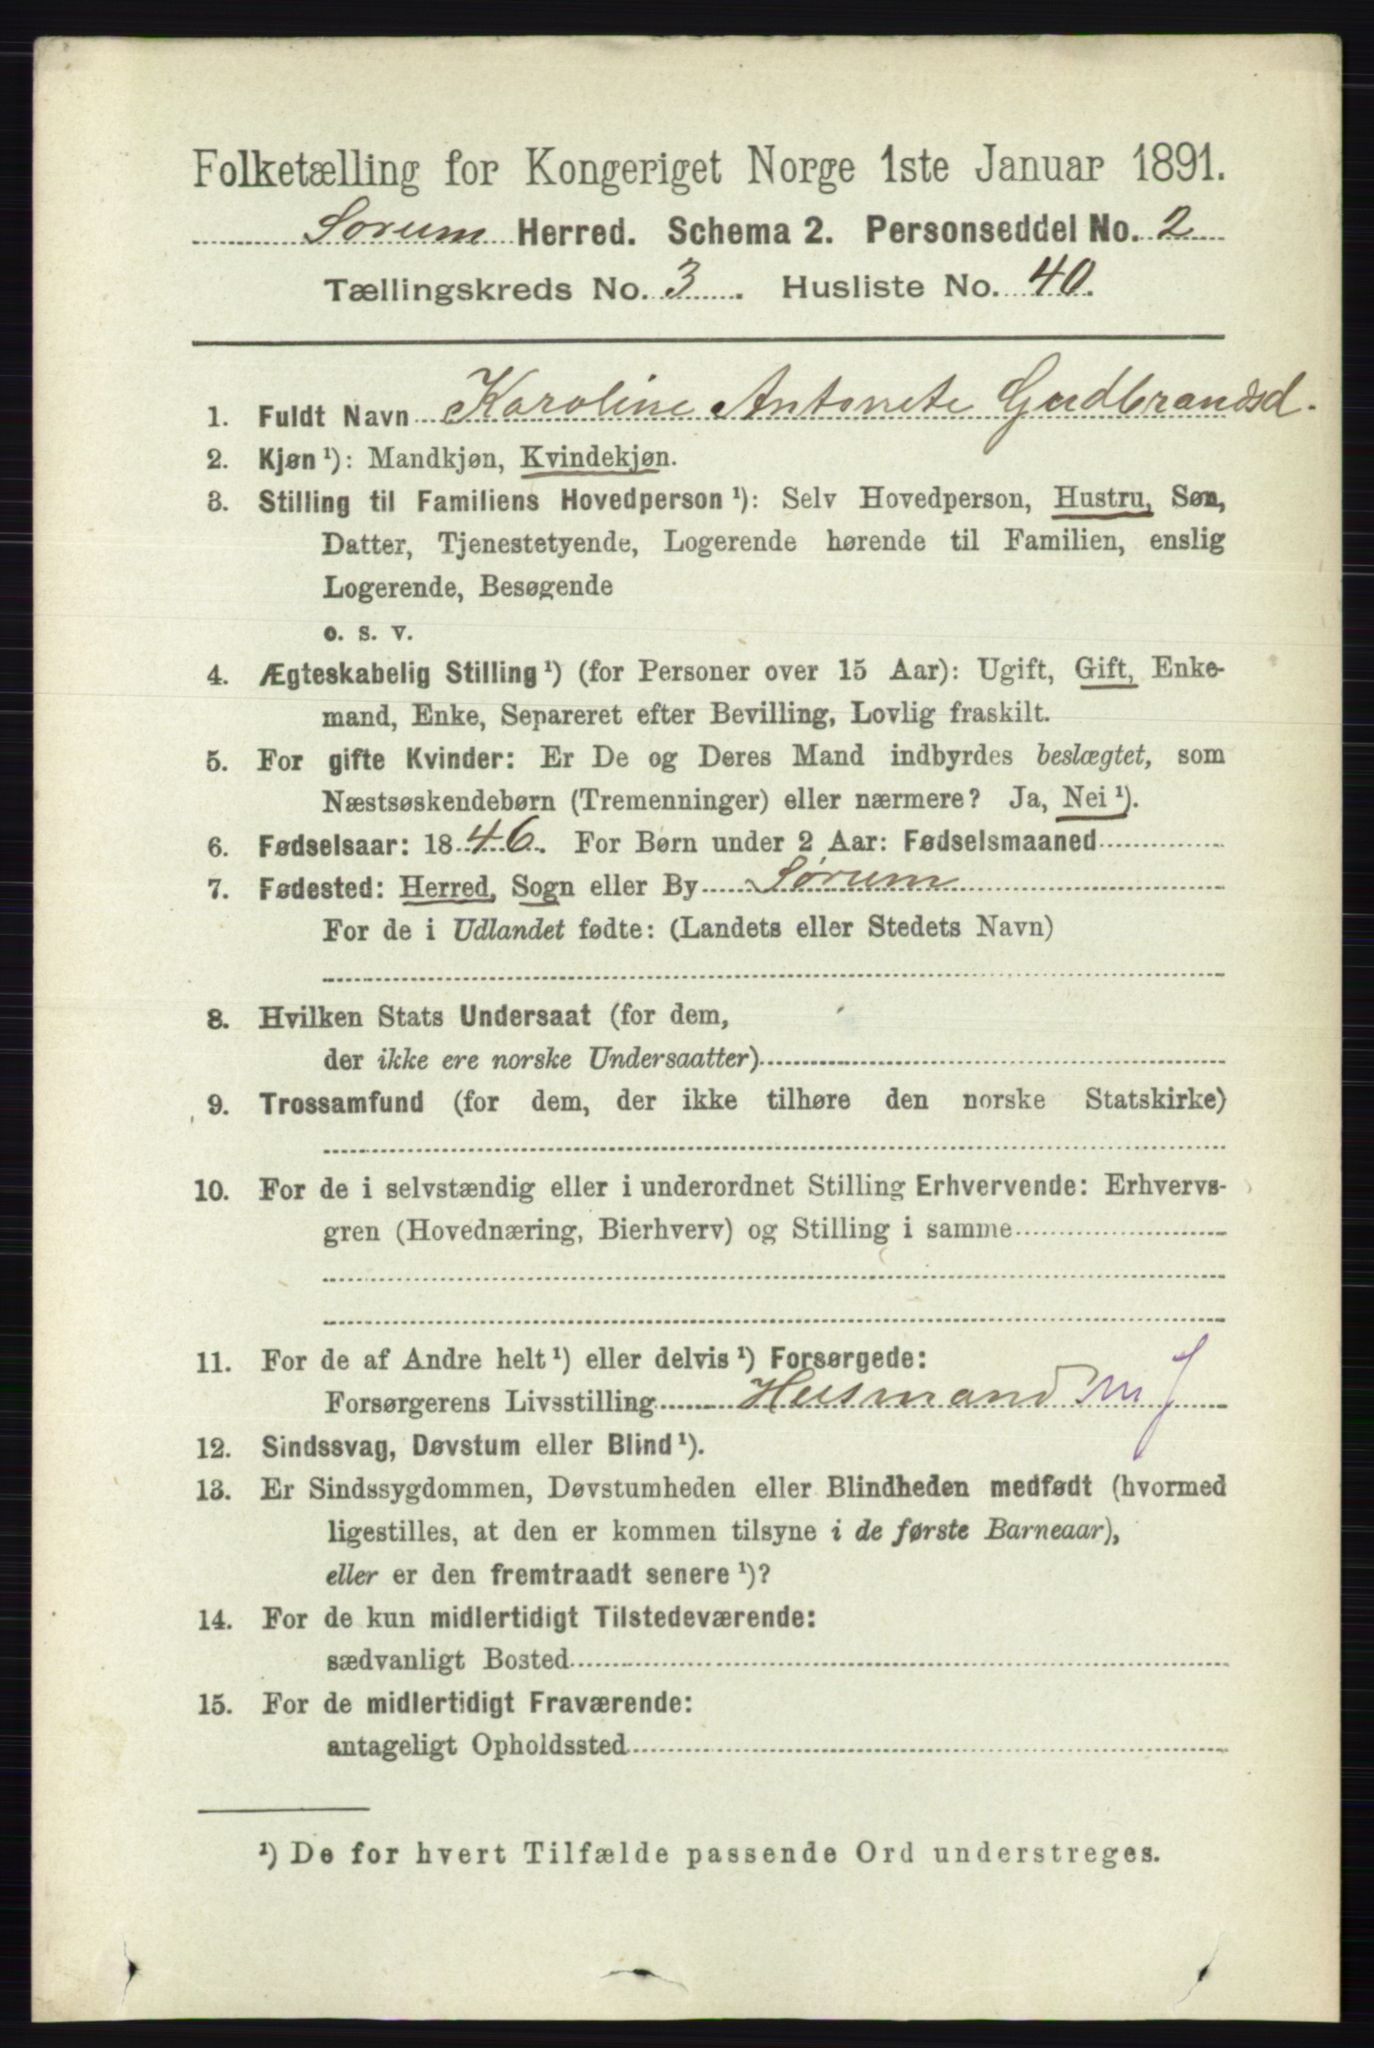 Folketælling for Kongeriget Norge 1ste Januar 1891.
Sørum Herred. Schema 2. Personseddel No. 2
Tællingskreds No. 3. Husliste No. 40.
1. Fuldt Navn Karoline Antonete Gudbrandsd.
2. Kjøn ¹): Mandkjøn, Kvindekjøn.
3. Stilling til Familiens Hovedperson ¹): Selv Hovedperson, Hustru, Søn,
Datter, Tjenestetyende, Logerende hørende til Familien, enslig
Logerende, Besøgende
o. s. v.
4. Ægteskabelig Stilling ¹) (for Personer over 15 Aar): Ugift, Gift, Enke-
mand, Enke, Separeret efter Bevilling, Lovlig fraskilt.
5. For gifte Kvinder: Er De og Deres Mand indbyrdes beslægtet, som
Næstsøskendebørn (Tremenninger) eller nærmere? Ja, Nei ¹).
6. Fødselsaar: 1846. For Børn under 2 Aar: Fødselsmaaned
7. Fødested: Herred, Sogn eller By Sørum
For de i Udlandet fødte: (Landets eller Stedets Navn)
8. Hvilken Stats Undersaat (for dem,
der ikke ere norske Undersaatter)
9. Trossamfund (for dem, der ikke tilhøre den norske Statskirke)
10. For de i selvstændig eller i underordnet Stilling Erhvervende: Erhvervs-
gren (Hovednæring, Bierhverv) og Stilling i samme
11. For de af Andre helt ¹) eller delvis ¹) Forsørgede:
Forsørgerens Livsstilling Husmand m J
12. Sindssvag, Døvstum eller Blind ¹).
13. Er Sindssygdommen, Døvstumheden eller Blindheden medfødt (hvormed
ligestilles, at den er kommen tilsyne i de første Barneaar),
eller er den fremtraadt senere ¹)?
14. For de kun midlertidigt Tilstedeværende:
sædvanligt Bosted
15. For de midlertidigt Fraværende:
antageligt Opholdssted
¹) De for hvert Tilfælde passende Ord understreges.